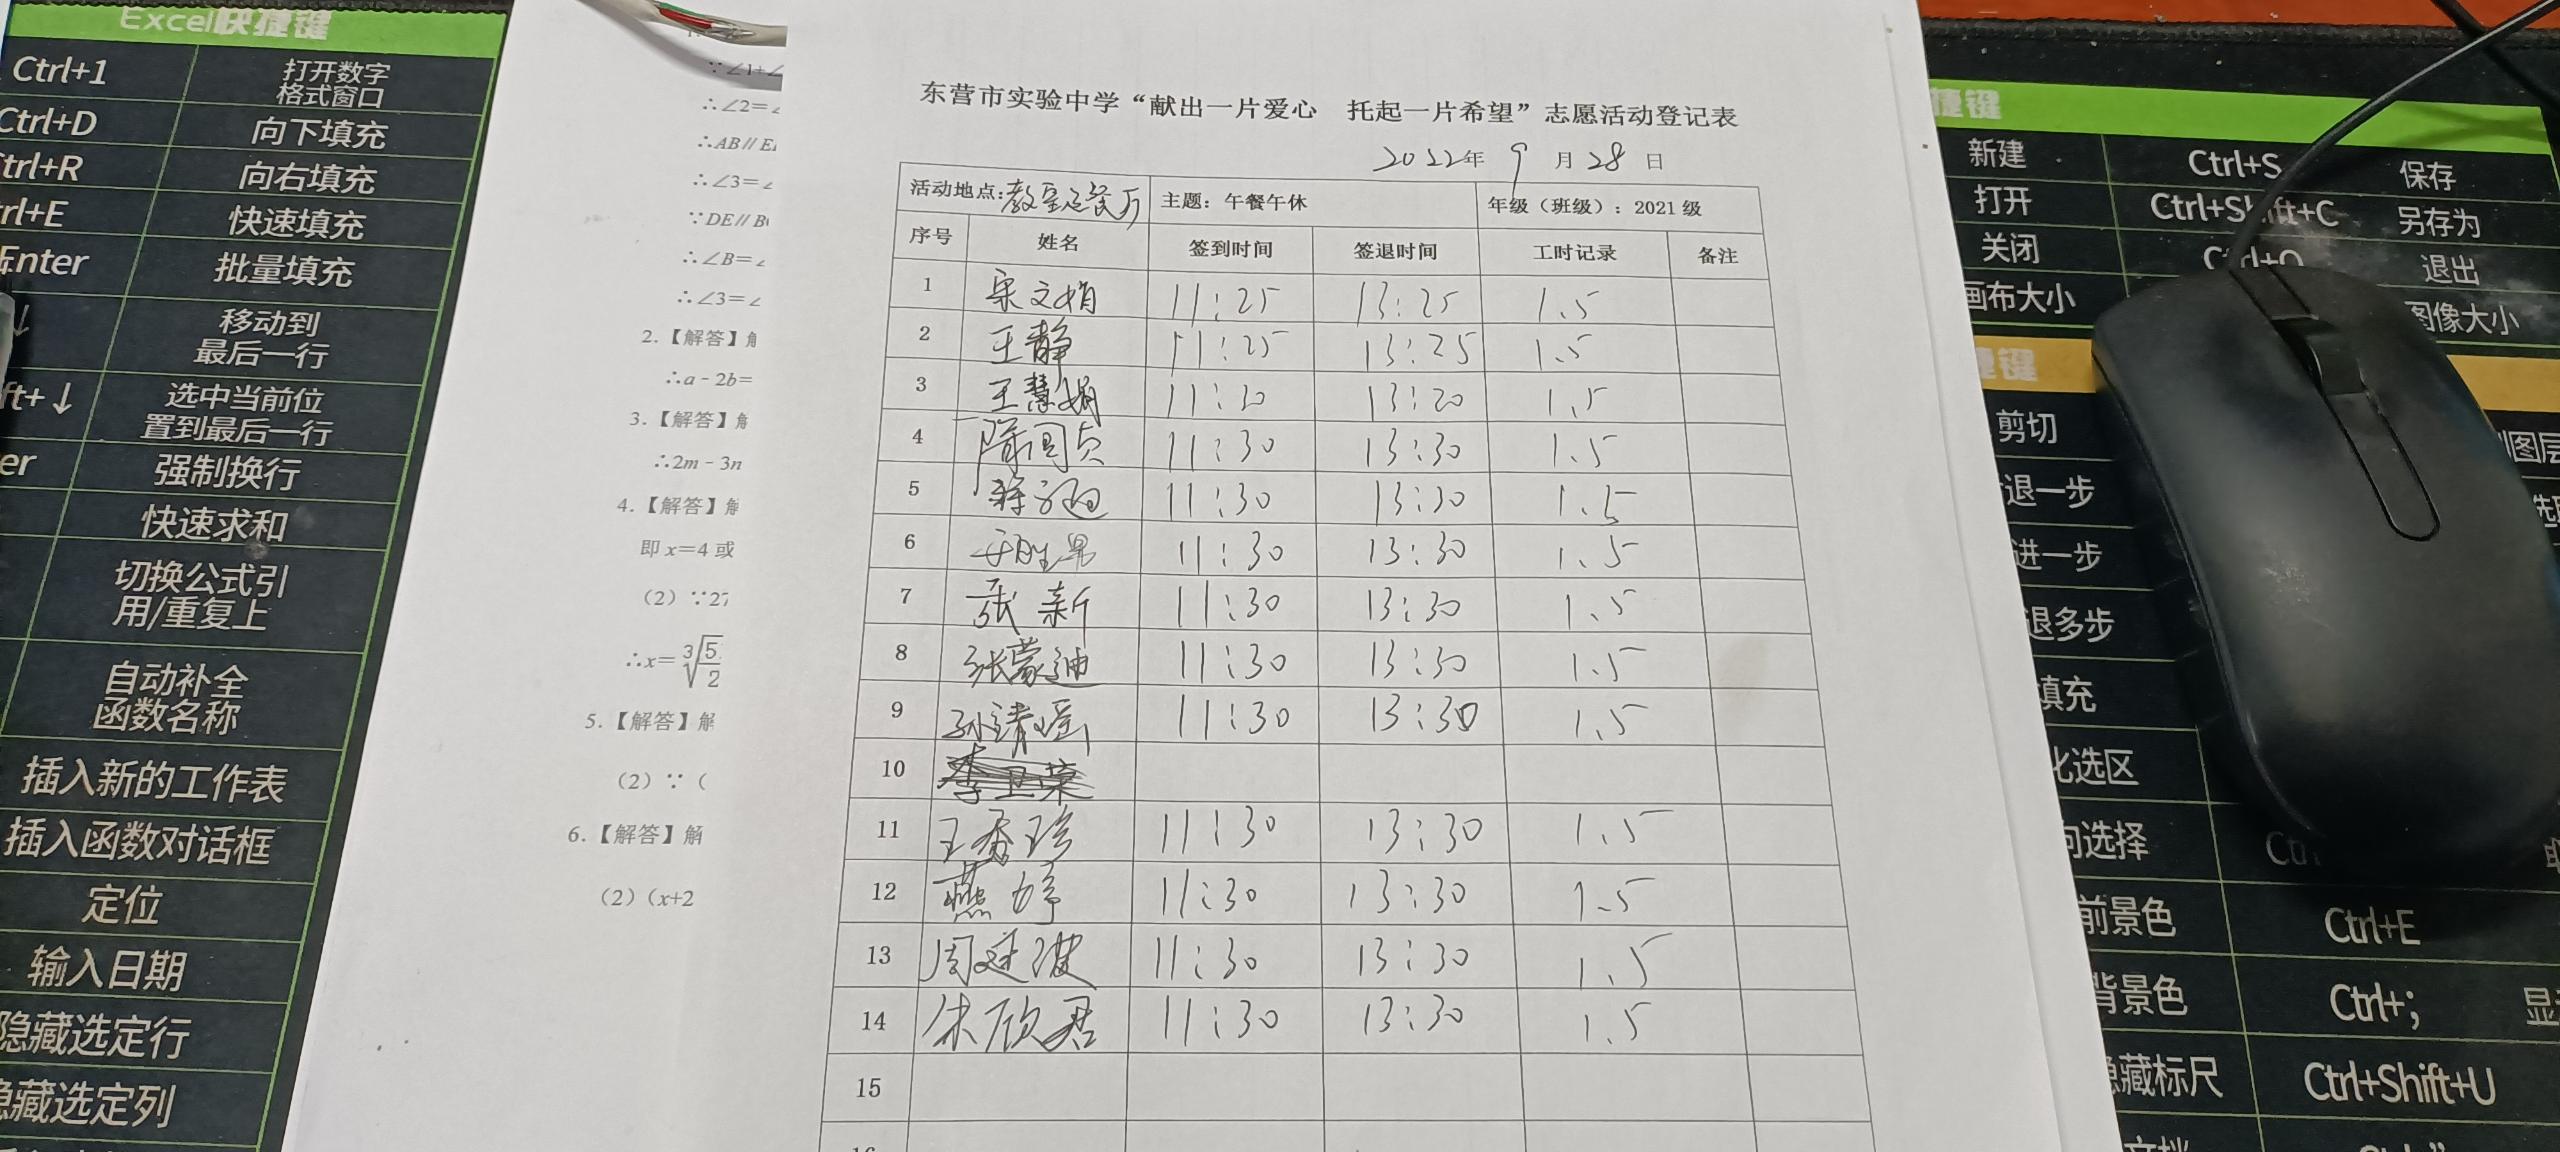 Excel快捷键
Ctrl+1 打开数字格式窗口
Ctrl+D 向下填充
trl+R 向右填充
rl+E 快速填充
Enter 批量填充
↓ 移动到最后一行
ft+↓ 选中当前位置到最后一行
er 强制换行
快速求和
切换公式引用/重复上
自动补全函数名称
插入新的工作表
插入函数对话框
定位
输入日期
隐藏选定行
隐藏选定列
∵∠1+∠
∴∠2=∠
∴AB∥E
∴∠3=∠
∵DE∥B
∴∠B=∠
∴∠3=∠
2.【解答】解
∴a-2b=
3.【解答】解
∴2m-3n
4.【解答】解
即x=4或
(2)∵27
∴x=∛(5/2)
5.【解答】解
(2)∵(
6.【解答】解
(2)(x+2
东营市实验中学“献出一片爱心 托起一片希望”志愿活动登记表
2022年9月28日
活动地点:教室及餐厅 主题:午餐午休 年级(班级):2021级
序号 姓名 签到时间 签退时间 工时记录 备注
1 宋文娟 11:25 13:25 1.5
2 王静 11:25 13:25 1.5
3 王慧娟 11:20 13:20 1.5
4 11:30 13:30 1.5
5 11:30 13:30 1.5
6 11:30 13:30 1.5
7 张新 11:30 13:30 1.5
8 张蒙迪 11:30 13:30 1.5
9 孙靖瑶 11:30 13:30 1.5
10 李卫荣
11 王秀珍 11:30 13:30 1.5
12 燕婷 11:30 13:30 1.5
13 周延波 11:30 13:30 1.5
14 欣君 11:30 13:30 1.5
15
捷键
新建 Ctrl+S 保存
打开 Ctrl+Shift+C 另存为
关闭 Ctrl+Q 退出
画布大小 图像大小
捷键
剪切 图层
退一步
进一步
退多步
填充
化选区
向选择
前景色 Ctrl+E
背景色 Ctrl+; 显
隐藏标尺 Ctrl+Shift+U
文档